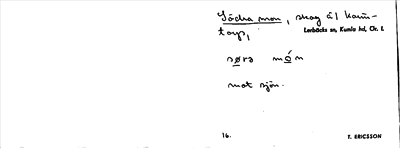 Södra mon, skog äl kam-
torp,
Lerbäcks sn, Kumla hd, Ör. l.
sørə món
mot sjön.
16.
T. ERICSSON